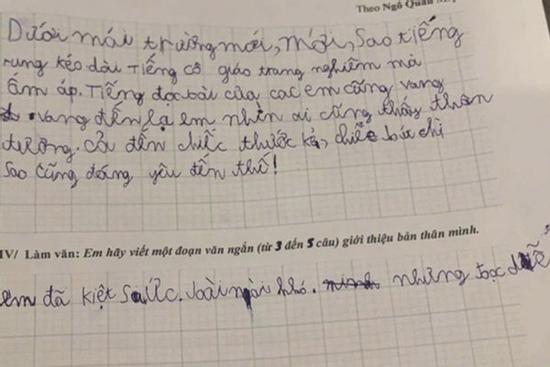 Theo Ngô Quân
Dưới mái trường mới, mới, sao tiếng
rung kéo dài Tiếng cô giáo trang nghiêm mà
ấm áp. Tiếng đọc bài của các em cũng vang
vang đến lạ em nhìn ai cũng thấy thân
thương. Cả đến chiếc thước kẻ, chiếc bút chì
sao cũng đáng yêu đến thế!
IV/ Làm văn: Em hãy viết một đoạn văn ngắn (từ 3 đến 5 câu) giới thiệu bản thân mình.
em đã kiệt sức. bài khó. những đọc dễ